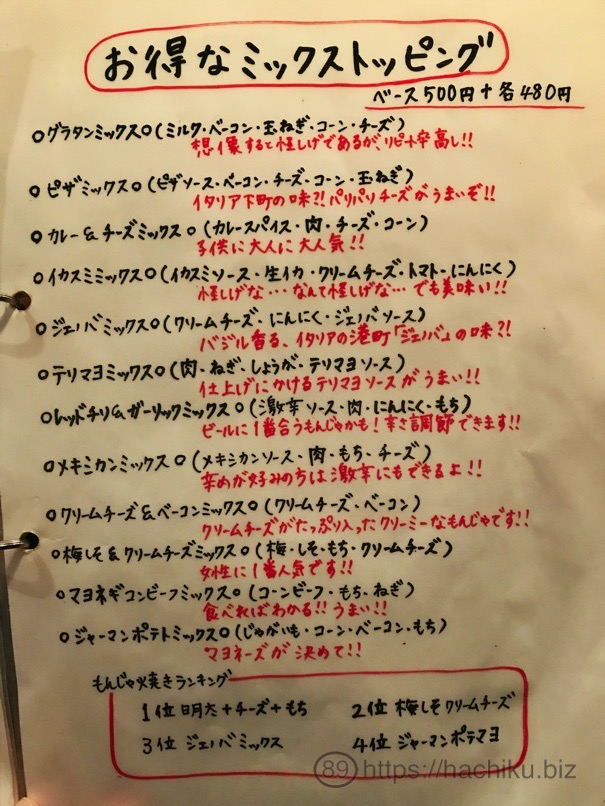 お得なミックストッピング
ベース500円+各480円
○グラタンミックス○(ミルク・ベーコン・玉ねぎ・コーン・チーズ)
想像すると怪しげであるが、リピート率高し!!
○ピザミックス○(ピザソース・ベーコン・チーズ・コーン・玉ねぎ)
イタリア下町の味?!パリパリチーズがうまいぞ!!
○カレー&チーズミックス○(カレースパイス・肉・チーズ・コーン)
子供に大人に大人気!!
○イカスミミックス○(イカスミソース・生イカ・クリームチーズ・トマト・にんにく)
怪しげな…なんて怪しげな…でも美味い!!
○ジェノバミックス○(クリームチーズ・にんにく・ジェノバソース)
バジル香る、イタリアの港町「ジェノバ」の味?!
○テリマヨミックス○(肉・ねぎ・しょうが・テリマヨソース)
仕上げにかけるテリマヨソースがうまい!!
○レッドチリ&ガーリックミックス○(激辛ソース・肉・にんにく・もち)
ビールに1番合うもんじゃかも!辛さ調節できます!!
○メキシカンミックス○(メキシカンソース・肉・もち・チーズ)
辛めが好みの方は激辛にもできるよ!!
○クリームチーズ&ベーコンミックス○(クリームチーズ・ベーコン)
クリームチーズがたっぷり入ったクリーミーなもんじゃです!!
○梅しそ&クリームチーズミックス○(梅・しそ・もち・クリームチーズ)
女性に1番人気です!!
○マヨネギコンビーフミックス○(コーンビーフ・もち・ねぎ)
食べればわかる!!うまい!!
○ジャーマンポテトミックス○(じゃがいも・コーン・ベーコン・もち)
マヨネーズが決めて!!
もんじゃ焼きランキング
1位 明太+チーズ+もち 2位 梅しそクリームチーズ
3位 ジェノバミックス 4位 ジャーマンポテマヨ
89 https://hachiku.biz